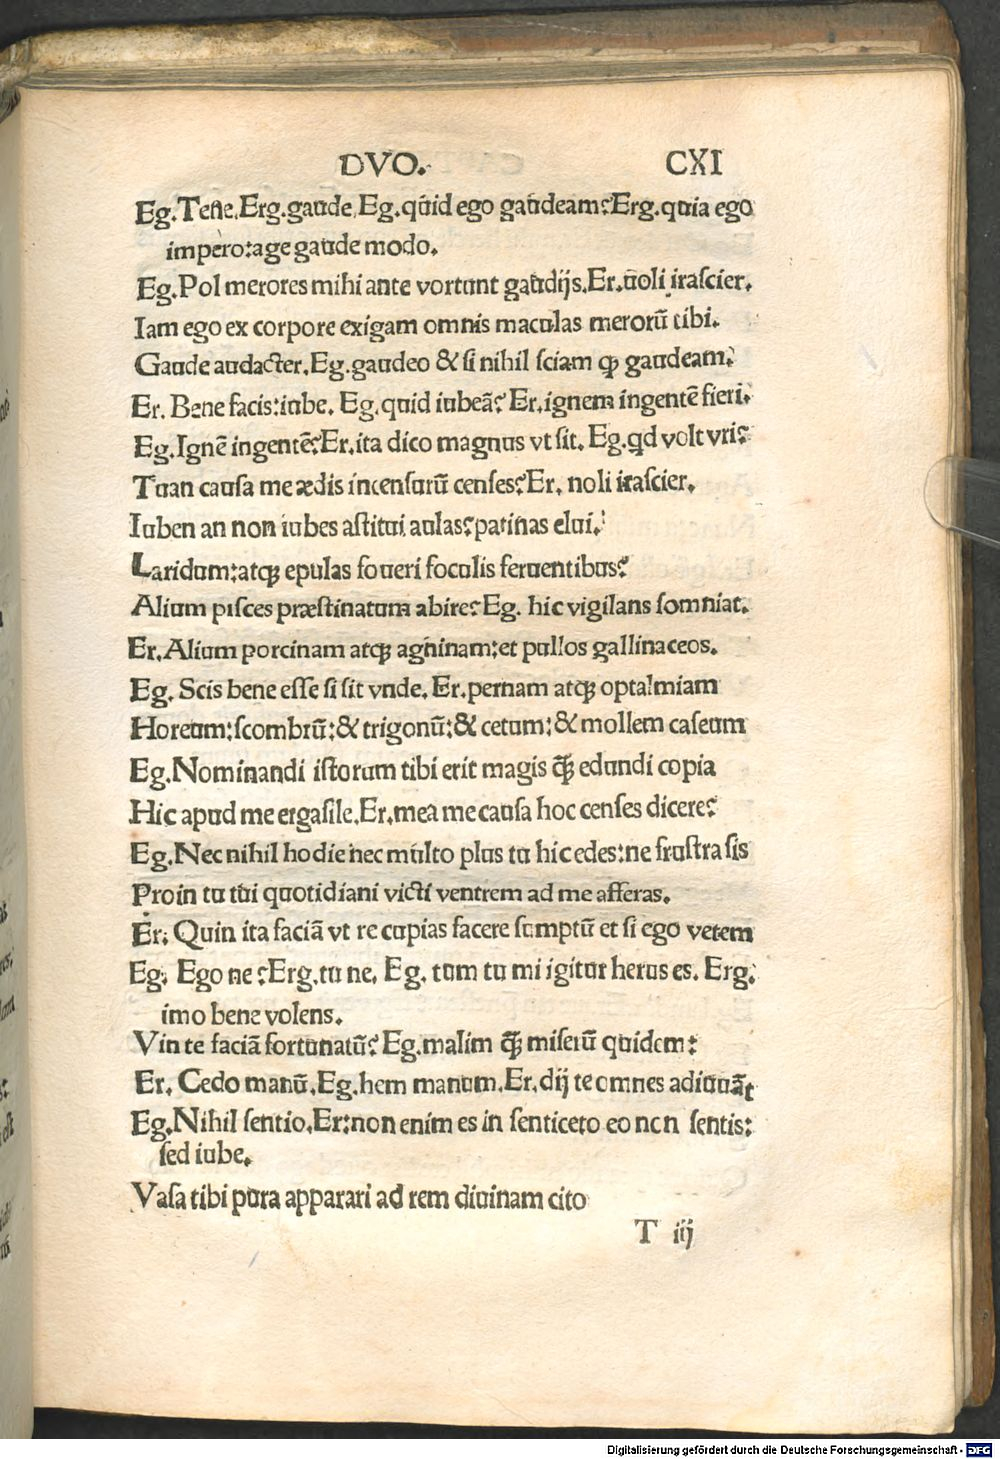 DVO. CXI
Eg.Tene.Erg.gaude.Eg.quid ego gaudeam?Erg.quia ego
impero:age gaude modo.
Eg.Pol merores mihi ante vortunt gaudijs.Er.noli irascier.
Iam ego ex corpore exigam omnis maculas merorũ tibi.
Gaude audacter.Eg.gaudeo & si nihil sciam ꝙ gaudeam.
Er. Bene facis:iube. Eg.quid iubeã? Er.ignem ingentẽ fieri.
Eg.Ignẽ ingentẽ?Er.ita dico magnus vt sit. Eg.qd volt vri?
Tuan causa me ædis incensurũ censes?Er. noli irascier.
Iuben an non iubes astitui aulas?patinas elui.
Laridum:atqꝫ epulas foueri foculis feruentibus?
Alium pisces præstinatum abire?Eg. hic vigilans somniat.
Er.Alium porcinam atqꝫ agninam:et pullos gallinaceos.
Eg. Scis bene esse si sit vnde. Er.pernam atqꝫ optalmiam
Horeum:scombrũ:& trigonũ:& cetum:& mollem caseum
Eg.Nominandi istorum tibi erit magis ꝙ̃ edundi copia
Hic apud me ergasile.Er.mea me causa hoc censes dicere?
Eg.Nec nihil hodie nec multo plus tu hic edes:ne frustra sis
Proin tu tui quotidiani victi ventrem ad me afferas.
Er: Quin ita faciã vt te cupias facere sumptũ et si ego vetem
Eg. Ego ne?Erg.tu ne. Eg. tum tu mi igitur herus es. Erg.
imo bene volens.
Vin te faciã fortunatũ? Eg.malim ꝙ̃ miserũ quidem:
Er. Cedo manũ.Eg.hem manum.Er.dij te omnes adiuuãt
Eg.Nihil sentio.Er:non enim es in senticeto eo non sentis:
sed iube.
Vasa tibi pura apparari ad rem diuinam cito
T iij
Digitalisierung gefördert durch die Deutsche Forschungsgemeinschaft - DFG